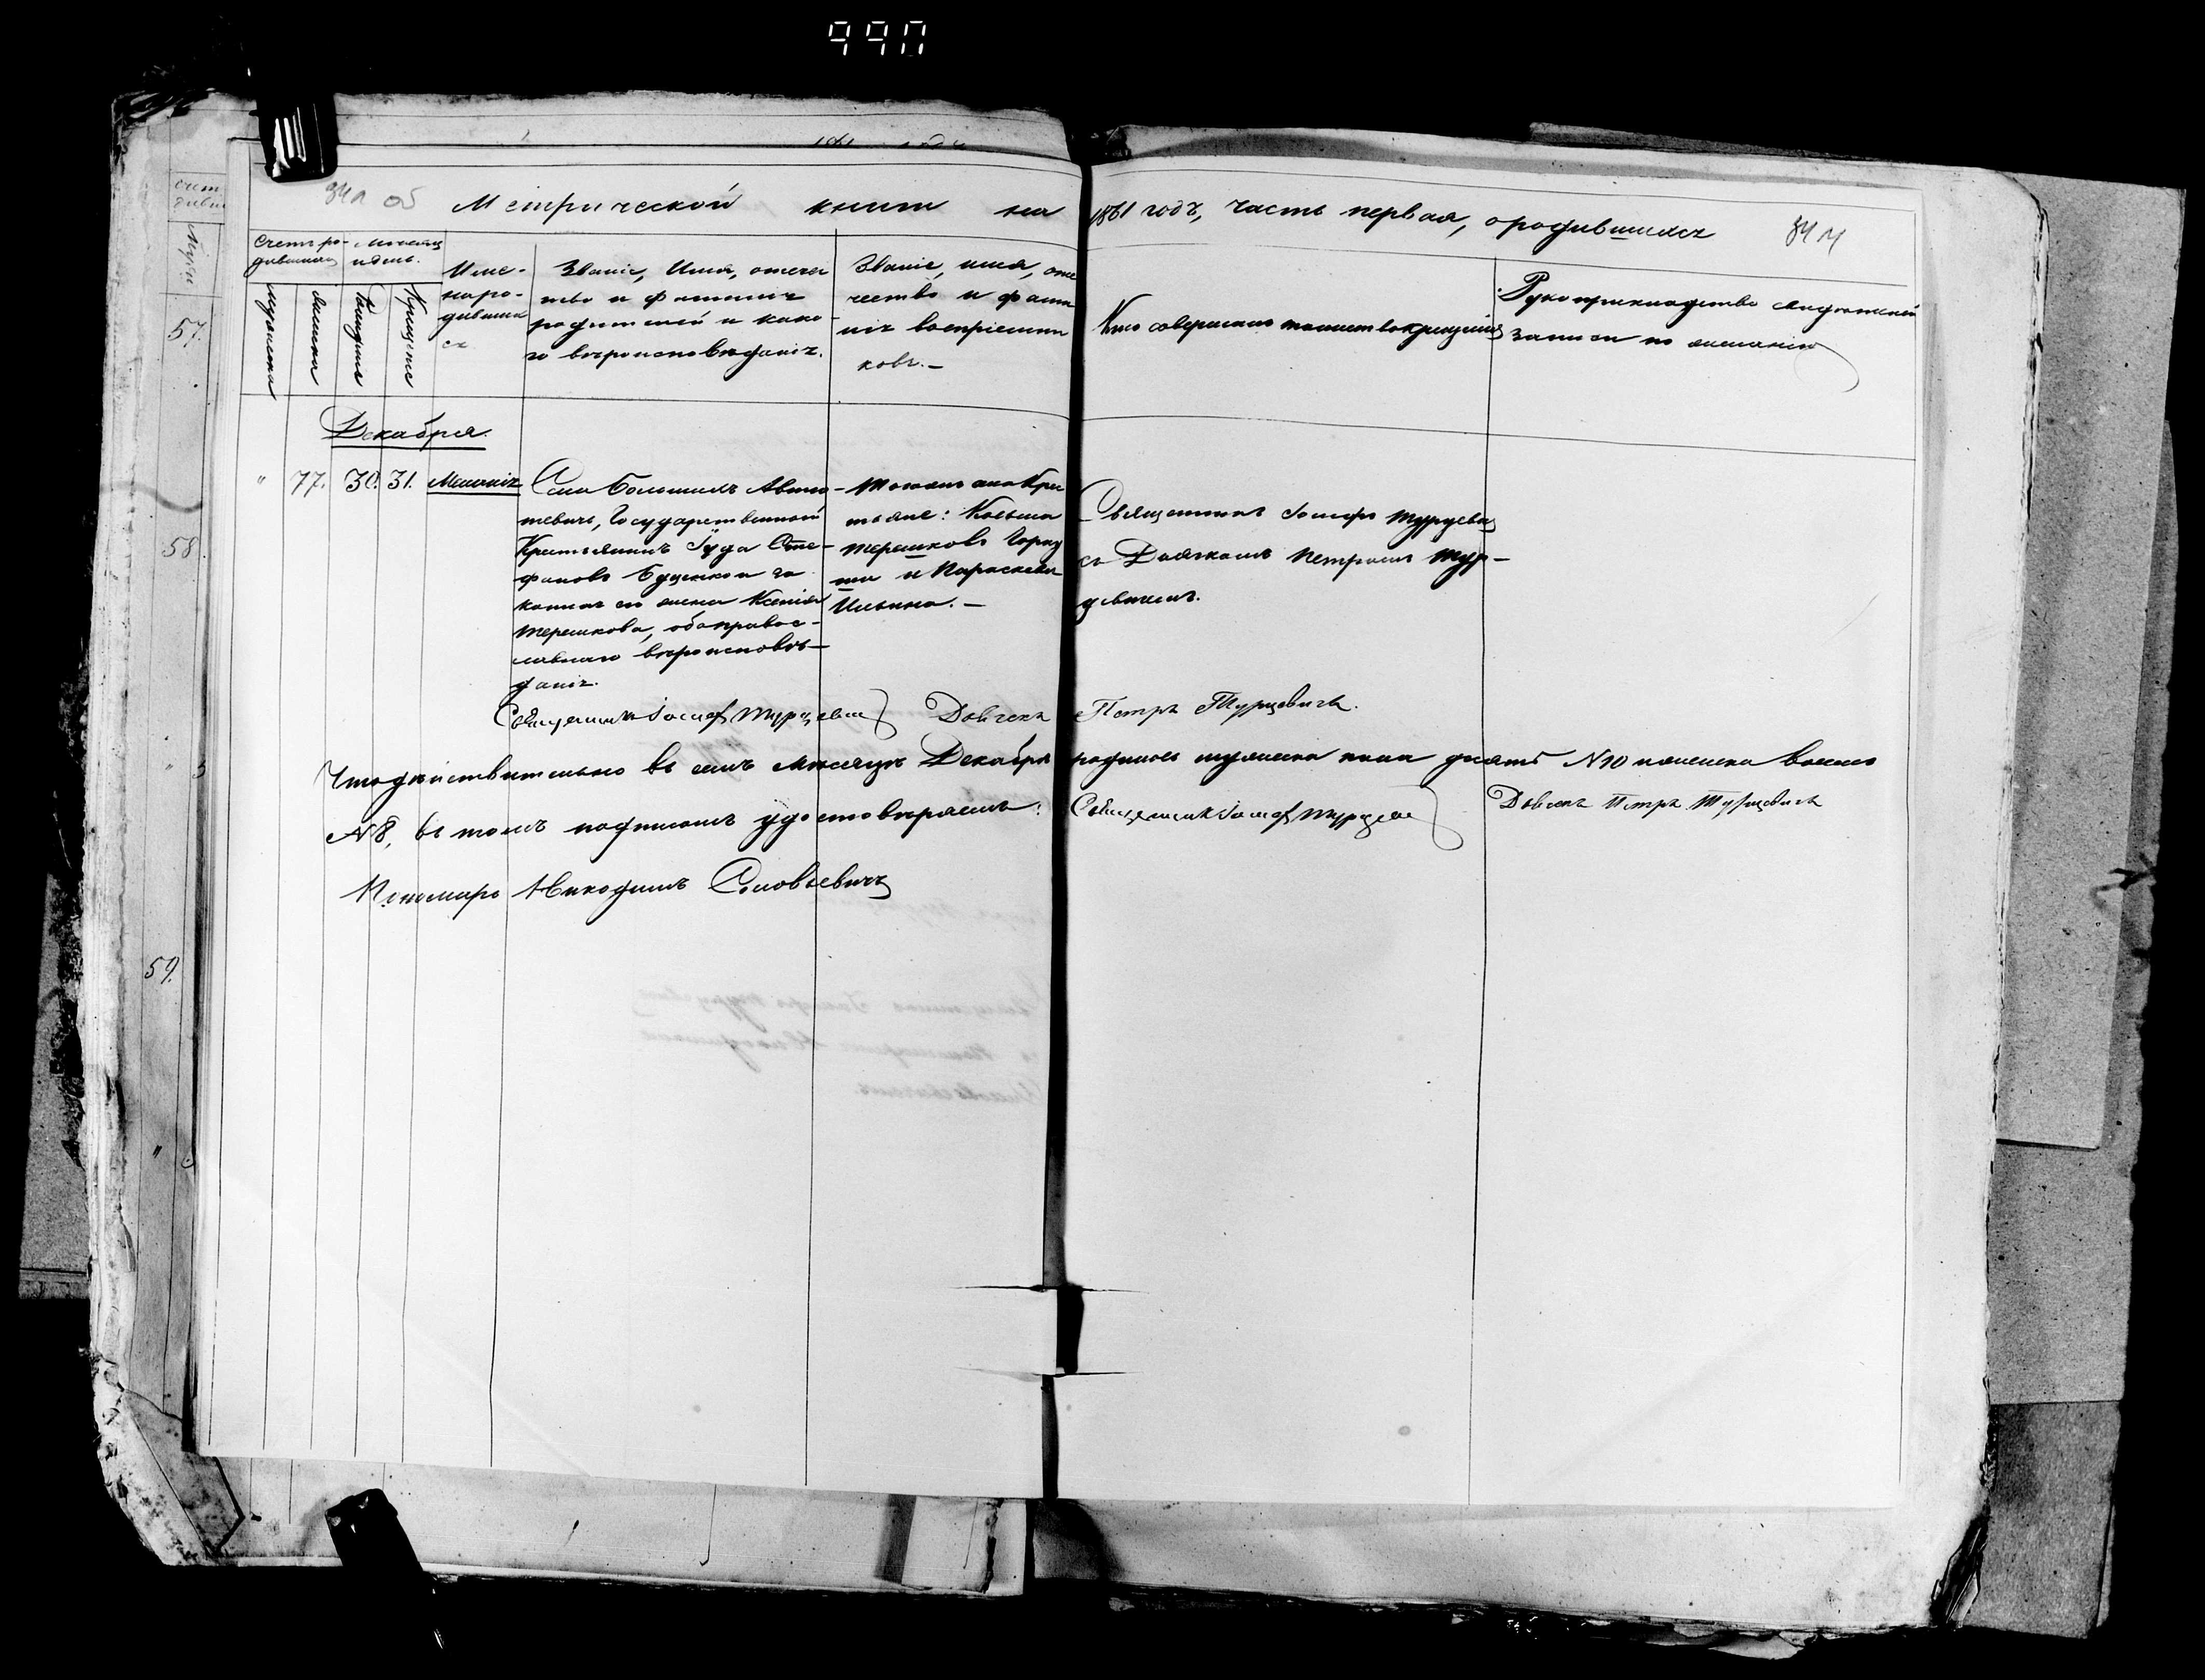 990
Метрической книги на 1861 годъ, часть первая, о родившихся
Счетъ ро-
дившихся
Мѣсяцъ
и день.
мужеска
женска
Рожденія
Крещенія
Име-
на ро-
дивших
ся
Званіе, Имя, отече
ство и фамилія
родителей и како-
го вѣроисповѣданія.
Званіе, имя, оте
чество и фами
лія воспріемни
ковъ.—
Кто совершалъ таинство крещенія
Рукоприкладство свидѣтелей
записи по желанію
57.
58.
59.
Декабря.
" 77. 30. 31. Меланія
Села Государственный
Крестьянинъ Іуда Сте-
фановъ Буценко и за
конная его жена Ксенія
Терешкова, оба правос-
лавнаго вѣроисповѣ-
данія.
Тогожъ села Кре
стьяне: Козьма
Терешковъ
и Параскева
Ильина.—
Священникъ Іосифъ Турцевичъ
съ Дьячкомъ Петромъ Тур-
цевичемъ.
Священникъ Іосифъ Турцевичъ Дьячекъ Петръ Турцевичъ.
Что дѣйствительно въ семъ мѣсяцѣ Декабрѣ родилось мужеска пола № 10 женска
№ 8, въ томъ подписомъ удостовѣряемъ: Священникъ Іосифъ Турцевичъ Дьячекъ Петръ Турцевичъ
Пономарь Никодимъ Соловьевичъ